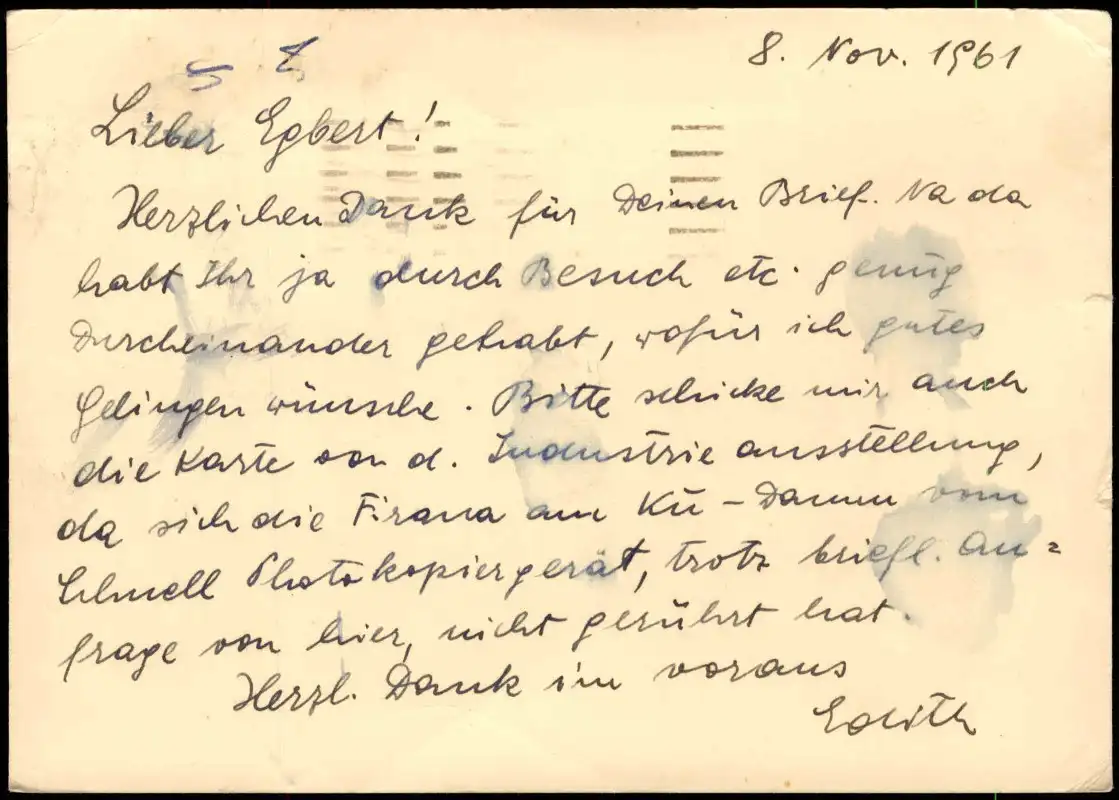 8. Nov. 1961
Lieber Egbert!
Herzlichen Dank für Deinen Brief. Na da
habt Ihr ja durch Besuch etc. genug
Durcheinander gehabt, wofür ich gutes
Gelingen wünsche. Bitte schicke mir auch
die Karte von d. Industrie ausstellung,
da sich die Firma am Kü-Damm vom
Schnell Photokopiergerät, trotz briefl. An=
frage von hier, nicht gerührt hat.
Herzl. Dank im voraus
Edith